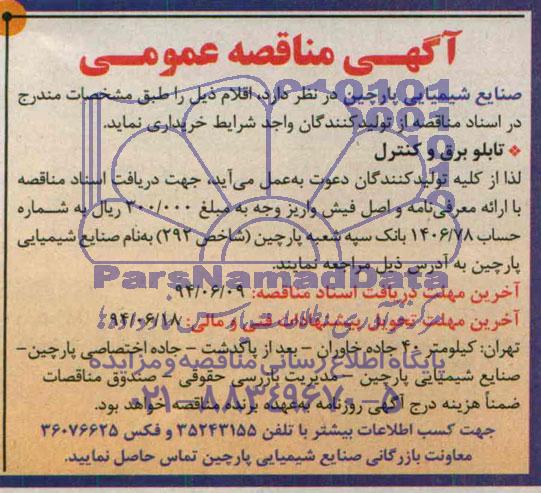 آگهـی مناقصه عمومـی
صنایع شیمیایی پارچین در نظر دارد، اقلام ذیل را طبق مشخصات مندرج
در اسناد مناقصه از تولیدکنندگان واجد شرایط خریداری نماید.
❖ تابلو برق و کنترل
لذا از کلیه تولیدکنندگان دعوت به‌عمل می‌آید، جهت دریافت اسناد مناقصه
با ارائه معرفی‌نامه و اصل فیش واریز وجه به مبلغ ۳۰۰/۰۰۰ ریال به شماره
حساب ۱۴۰۶/۷۸ بانک سپه شعبه پارچین (شاخص ۲۹۲) به‌نام صنایع شیمیایی
پارچین به آدرس ذیل مراجعه نمایند.
ParsNamadData
آخرین مهلت دریافت اسناد مناقصه: ۹۴/۰۶/۰۹
آخرین مهلت تحویل پیشنهادات فنی و مالی: ۹۴/۰۶/۱۸
تهران: کیلومتر ۴۰ جاده خاوران – بعد از پاکدشت – جاده اختصاصی پارچین–
پایگاه اطلاع رسانی مناقصه و مزایده
صنایع شیمیایی پارچین – مدیریت بازرسی حقوقی – صندوق مناقصات
۰۲۱–۸۸۳۴۹۶۷۰–۵
ضمناً هزینه درج آگهی روزنامه به‌عهده برنده مناقصه خواهد بود.
جهت کسب اطلاعات بیشتر با تلفن ۳۵۲۴۳۱۵۵ و فکس ۳۶۰۷۶۶۲۵
معاونت بازرگانی صنایع شیمیایی پارچین تماس حاصل نمایید.